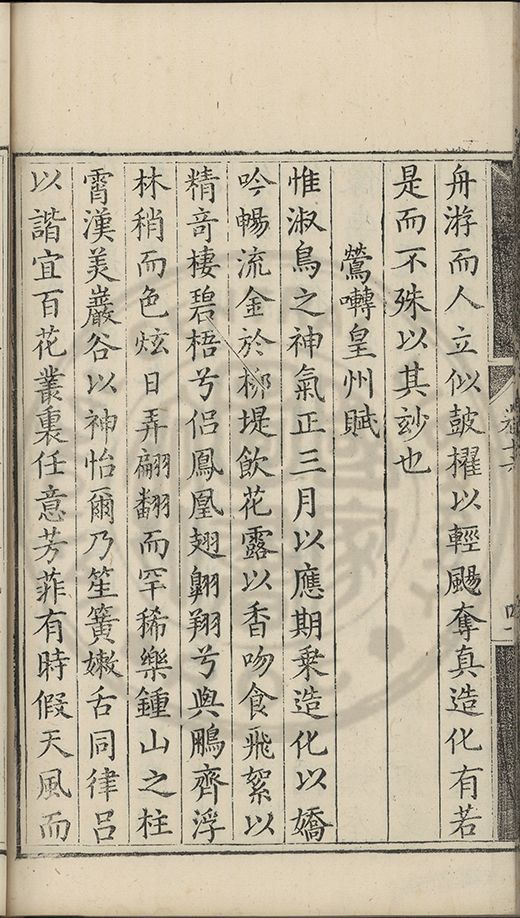 舟游而人立似鼓擢以輕颺奪真造化有若
是而不殊以其玅也
鶯囀皇州賦
惟淑鳥之神氣正三月以應期乗造化以嬌
吟暢流金於柳堤飲花露以香吻食飛絮以
精竒棲碧梧兮侶鳳凰翅翺翔兮與鵬齊浮
林稍而色炫日弄翩翻而罕稀樂鍾山之柱
霄漢美巖谷以神怡爾乃笙簧嫩舌同律呂
以諧宜百花叢裏任意芳菲有時假天風而